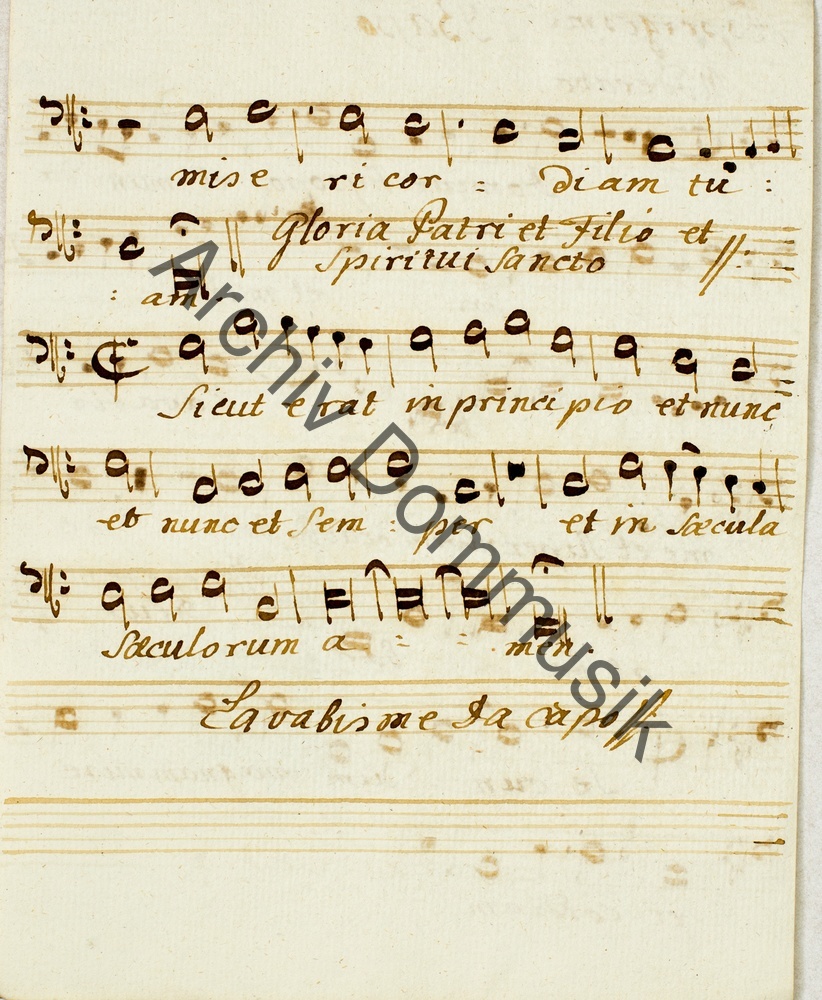 mise ri cor = diam tu :
Gloria Patri et Filio et
Spiritui Sancto
: am.
Sicut erat in principio et nunc
et nunc et sem : per et in sæcula
Sæculorum a = = men.
Lavabis me Da capo
Archiv Dommusik